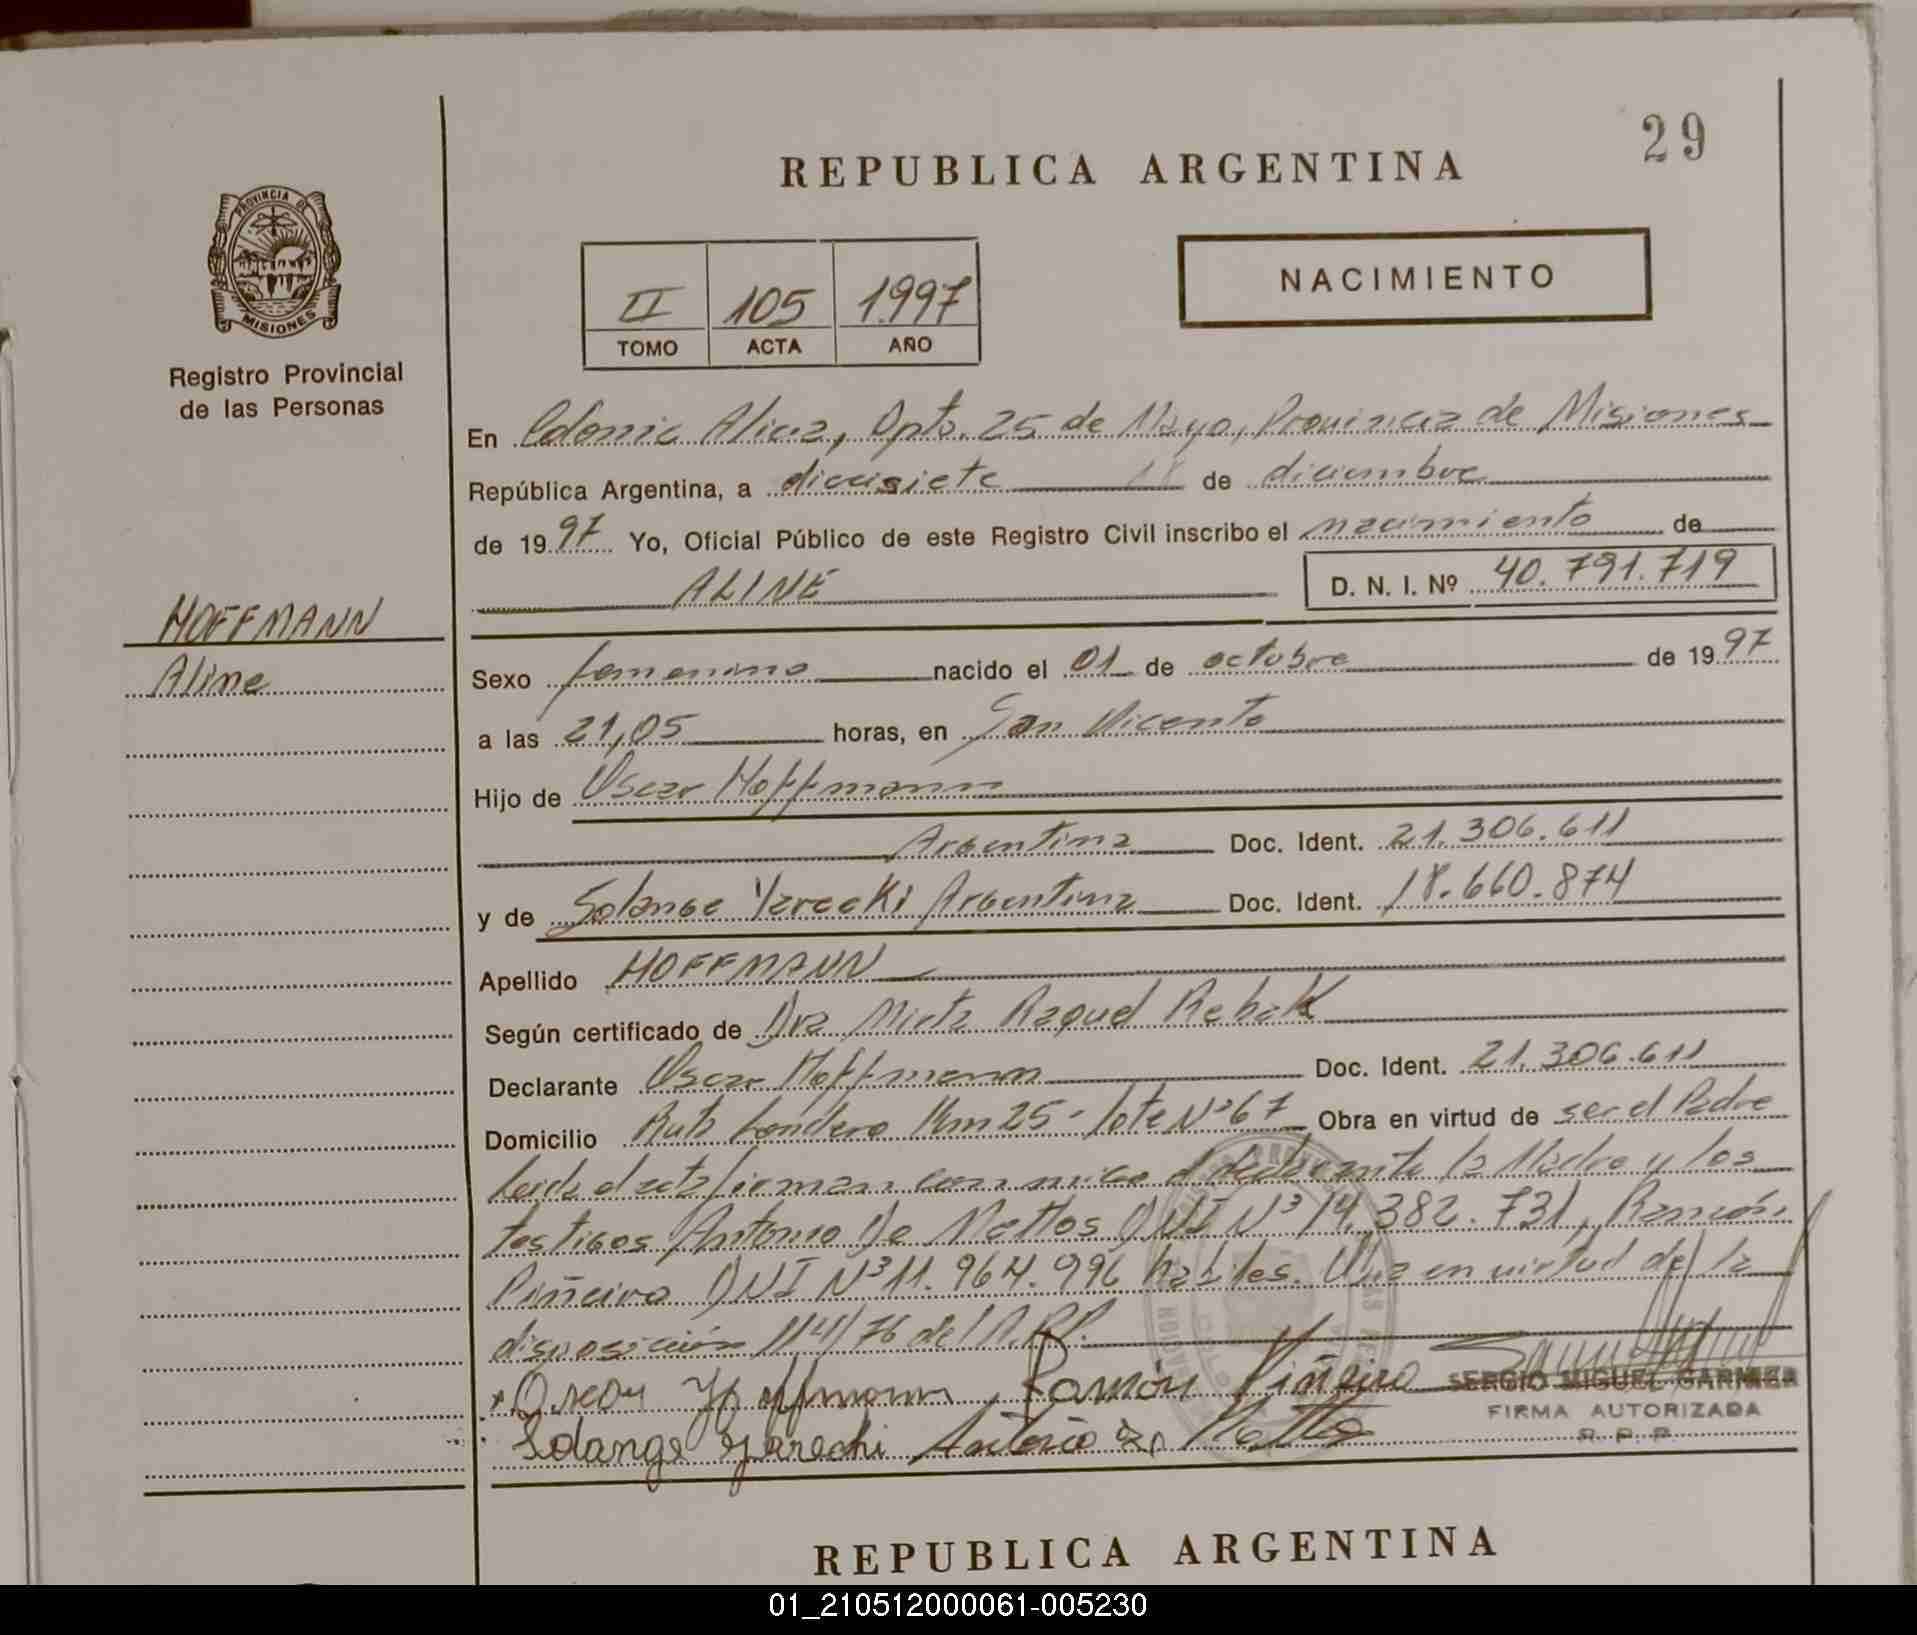 29
REPUBLICA ARGENTINA
PROVINCIA DE
MISIONES
Registro Provincial
de las Personas
II 105 1997
TOMO ACTA AÑO
NACIMIENTO
En Colonia Alicia, Dpto. 25 de Mayo, Provincia de Misiones
República Argentina, a diecisiete de diciembre
de 1997 Yo, Oficial Público de este Registro Civil inscribo el nacimiento de
ALINE D. N. I. Nº 40.791.719
HOFFMANN
Aline
Sexo femenino nacido el 01 de octubre de 1997
a las 21,05 horas, en San Vicente
Hijo de Oscar Hoffmann
Argentina Doc. Ident. 21.306.611
y de Solange Yarecki Argentina Doc. Ident. 18.660.874
Apellido HOFFMANN
Según certificado de Dra Mirta Raquel Rebak
Declarante Oscar Hoffmann Doc. Ident. 21.306.611
Domicilio Ruta Londero Km 25 - lote Nº 67 Obra en virtud de ser el Padre
Leida el acta firman conmigo el declarante la Madre y los
testigos Antonio De Mattos DNI Nº 14.382.731, Ramón
Piñeiro DNI Nº 11.964.996 habiles. Obra en virtud de la
disposición 114/76 del R.P.P.
Oscar Hoffmann Ramón Piñeiro
SERGIO MIGUEL GARNIER
FIRMA AUTORIZADA
R. P. P.
Solange Yarecki Antonio De Mattos
REPUBLICA ARGENTINA
01_210512000061-005230